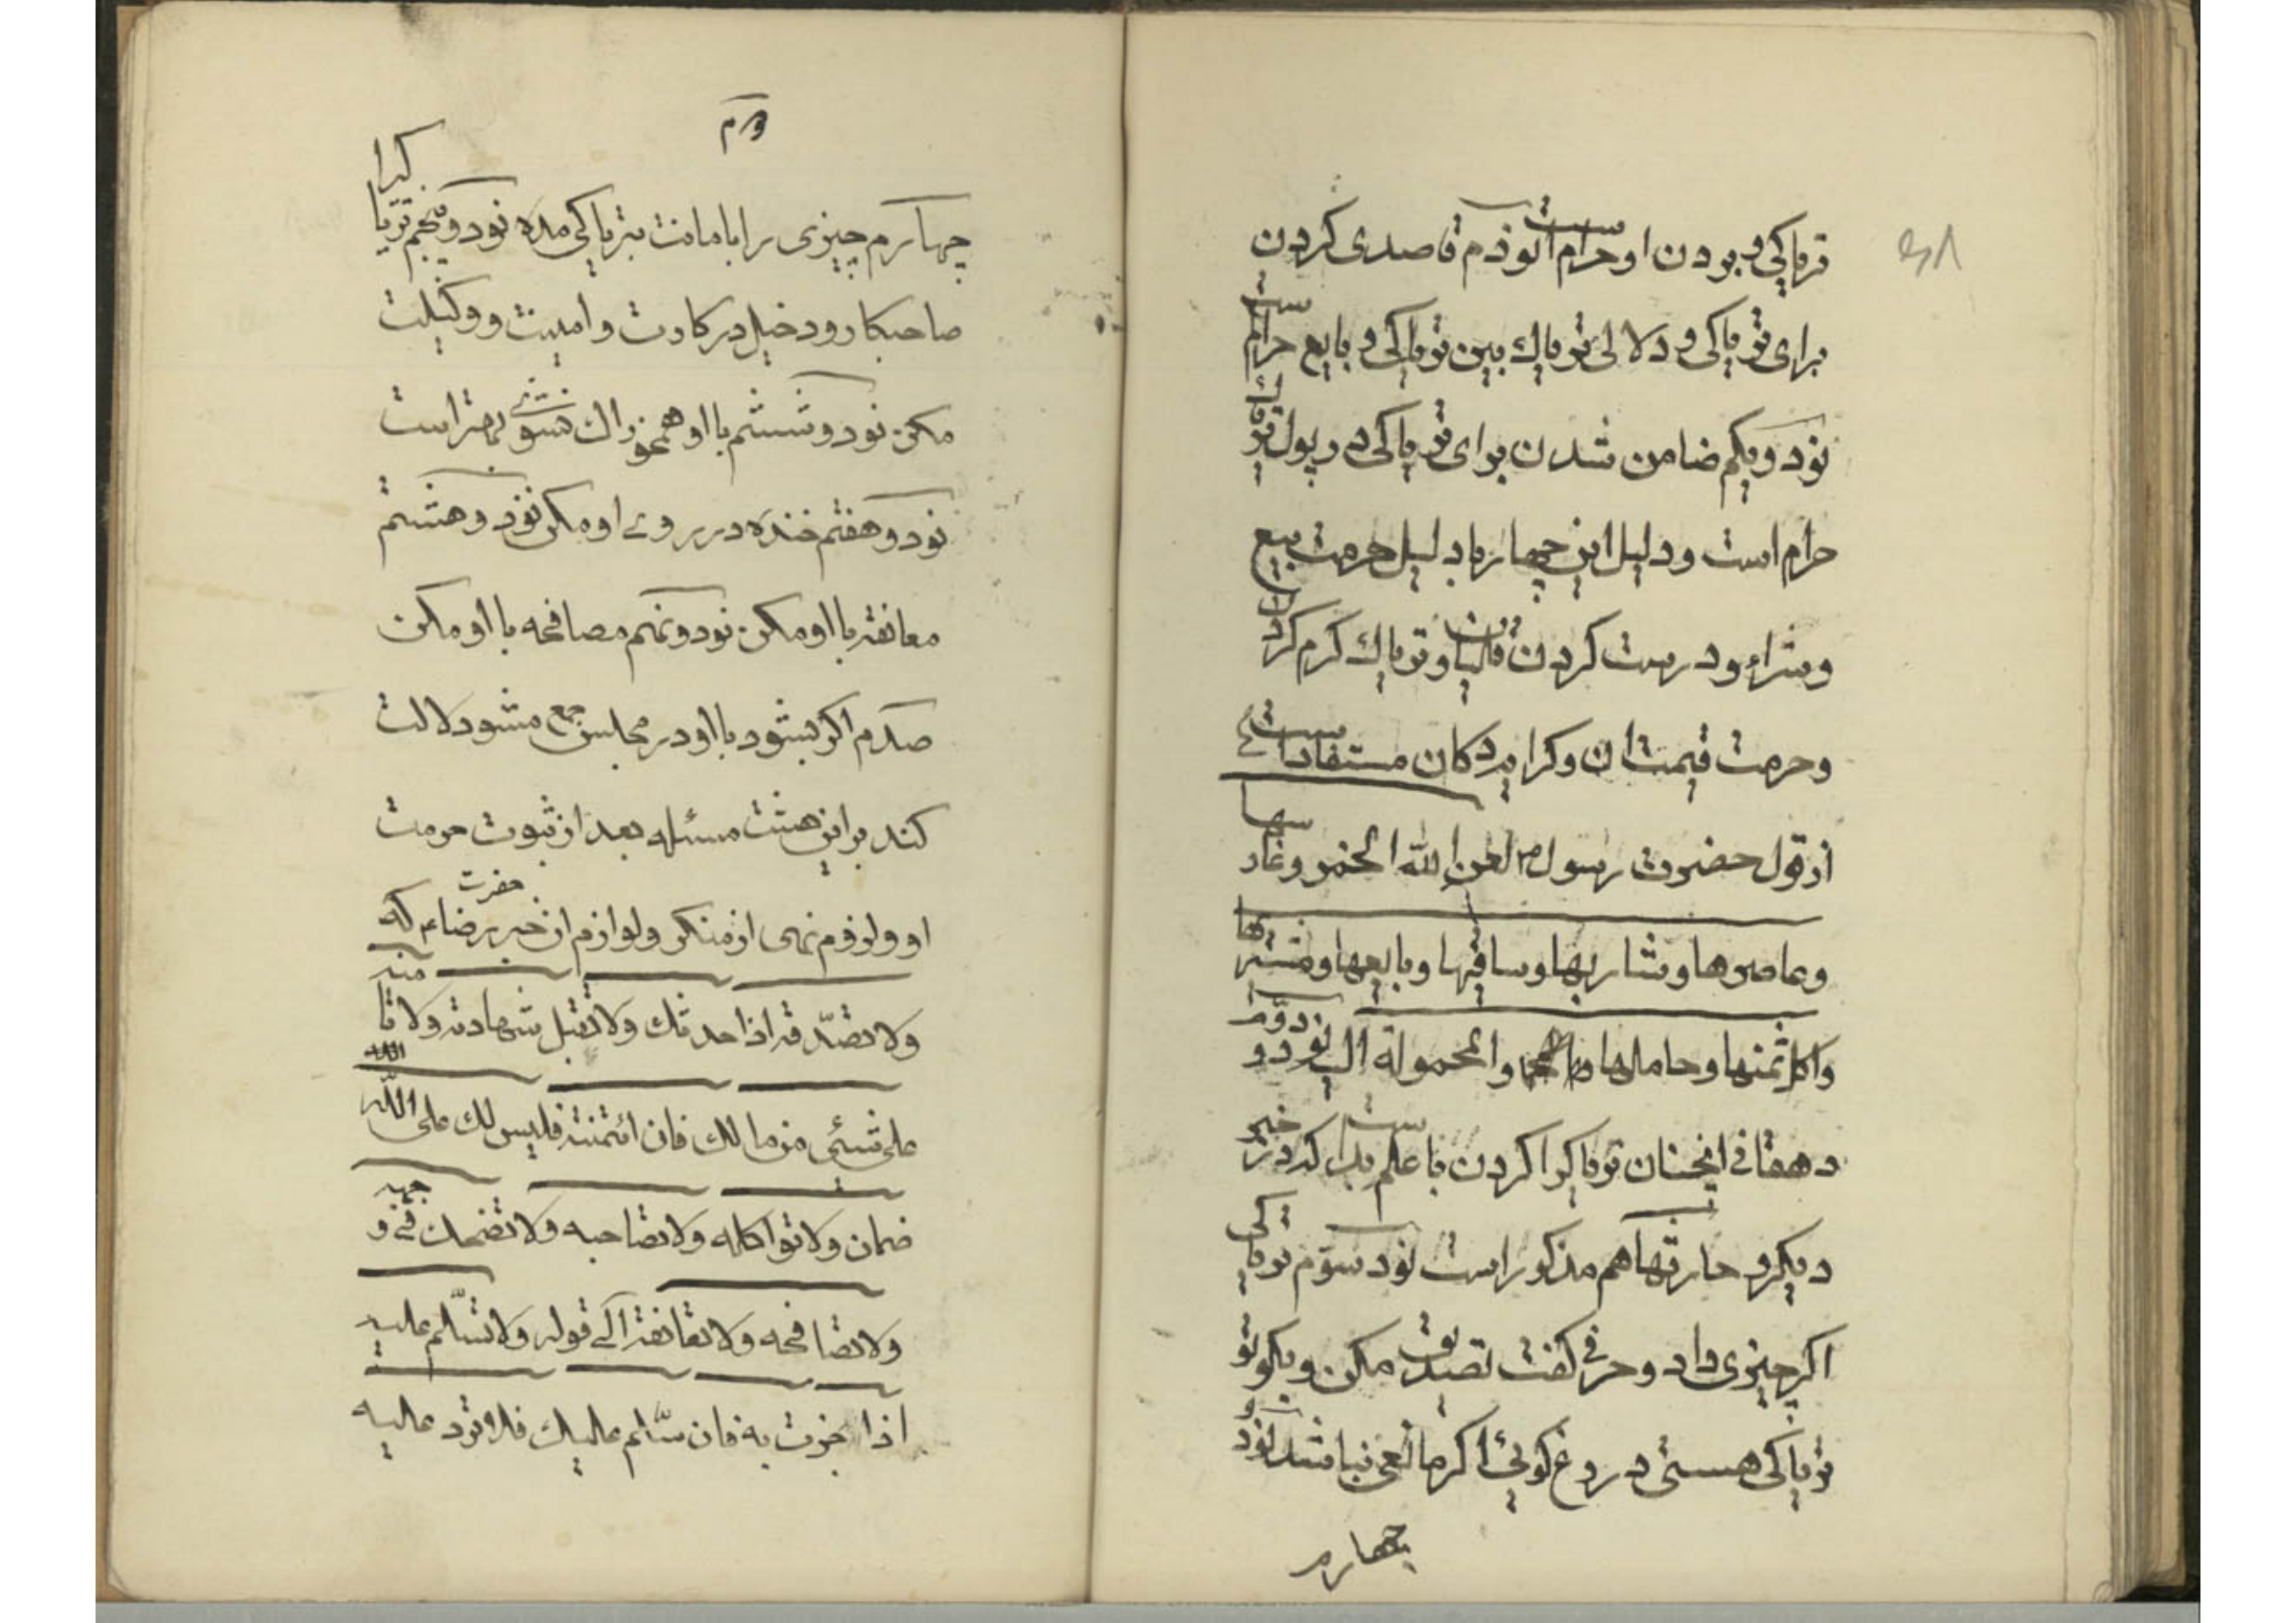 تریاکی و بودن او حرام است نودم قاصدی کردن
برای تریاکی و دلالی تریاك بین تریاکی و بایع حرام است
نود و یکم ضامن شدن برای تریاکی در پول تریاك
حرام است و دلیل این چهار باد لیل حرمت بیع
و شراء و درست کردن قلیان و تریاك کرم کردن
و حرمت قیمت ان و کرایه دکان مستفاد است
از قول حضرت رسول ص لعن الله الخمر و غارسها
و عاصرها و شاربها و ساقیها و بایعها و مشتریها
و اکل ثمنها و حاملها و المحمولة الیه نود و دوم
دهقانی انچنان تریاکرا کردن با علم بد است که در خبر
دیکر و حارثها هم مذکور است نود سوم تریاکی
اکر چیزی داد و حرفی کفت تصدیق مکن و بکو تو
تریاکی هستی دروغ کوئی اکر مانعی نباشد نود و
چهارم
چهارم چیزی را با مانت بتریاکی مده نود و پنجم تریاکیرا
صاحبکار و دخیل در کارت و امینت و وکیلت
مکن نود و ششم با او همخوراك نشوی بهتر است
نود و هفتم خنده در روی او مکن نود و هشتم
معانقه با او مکن نود و نهم مصافحه با او مکن
صدم اکر بشود با او در مجلس جمع مشو دلالت
کند بر این هشت مسئله بعد از ثبوت حرمت
او و لزوم نهی از منکر و لوازم ان خبر حضرت رضا ع که
ولا تصدّقه اذا حدثك ولا تقبل شهادته ولا تامنه
علی شیئی من مالك فان ائتمنته فلیس لك علی اللّه
ضمان ولا تواکله ولا تصاحبه ولا تضحك فی وجهه
ولا تصافحه ولا تعانقه الی قوله ولا تسّلم علیه
اذا جزت به فان سّلم علیك فلا ترد علیه